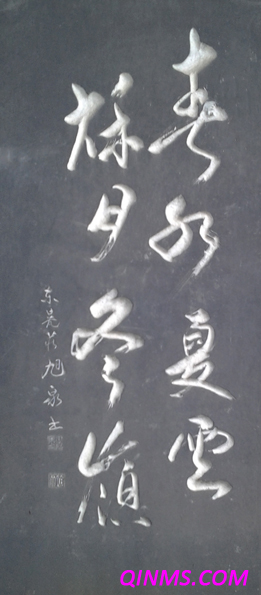 春水夏雲
秋月冬嶺
东吴莊旭泉书
QINMS.COM